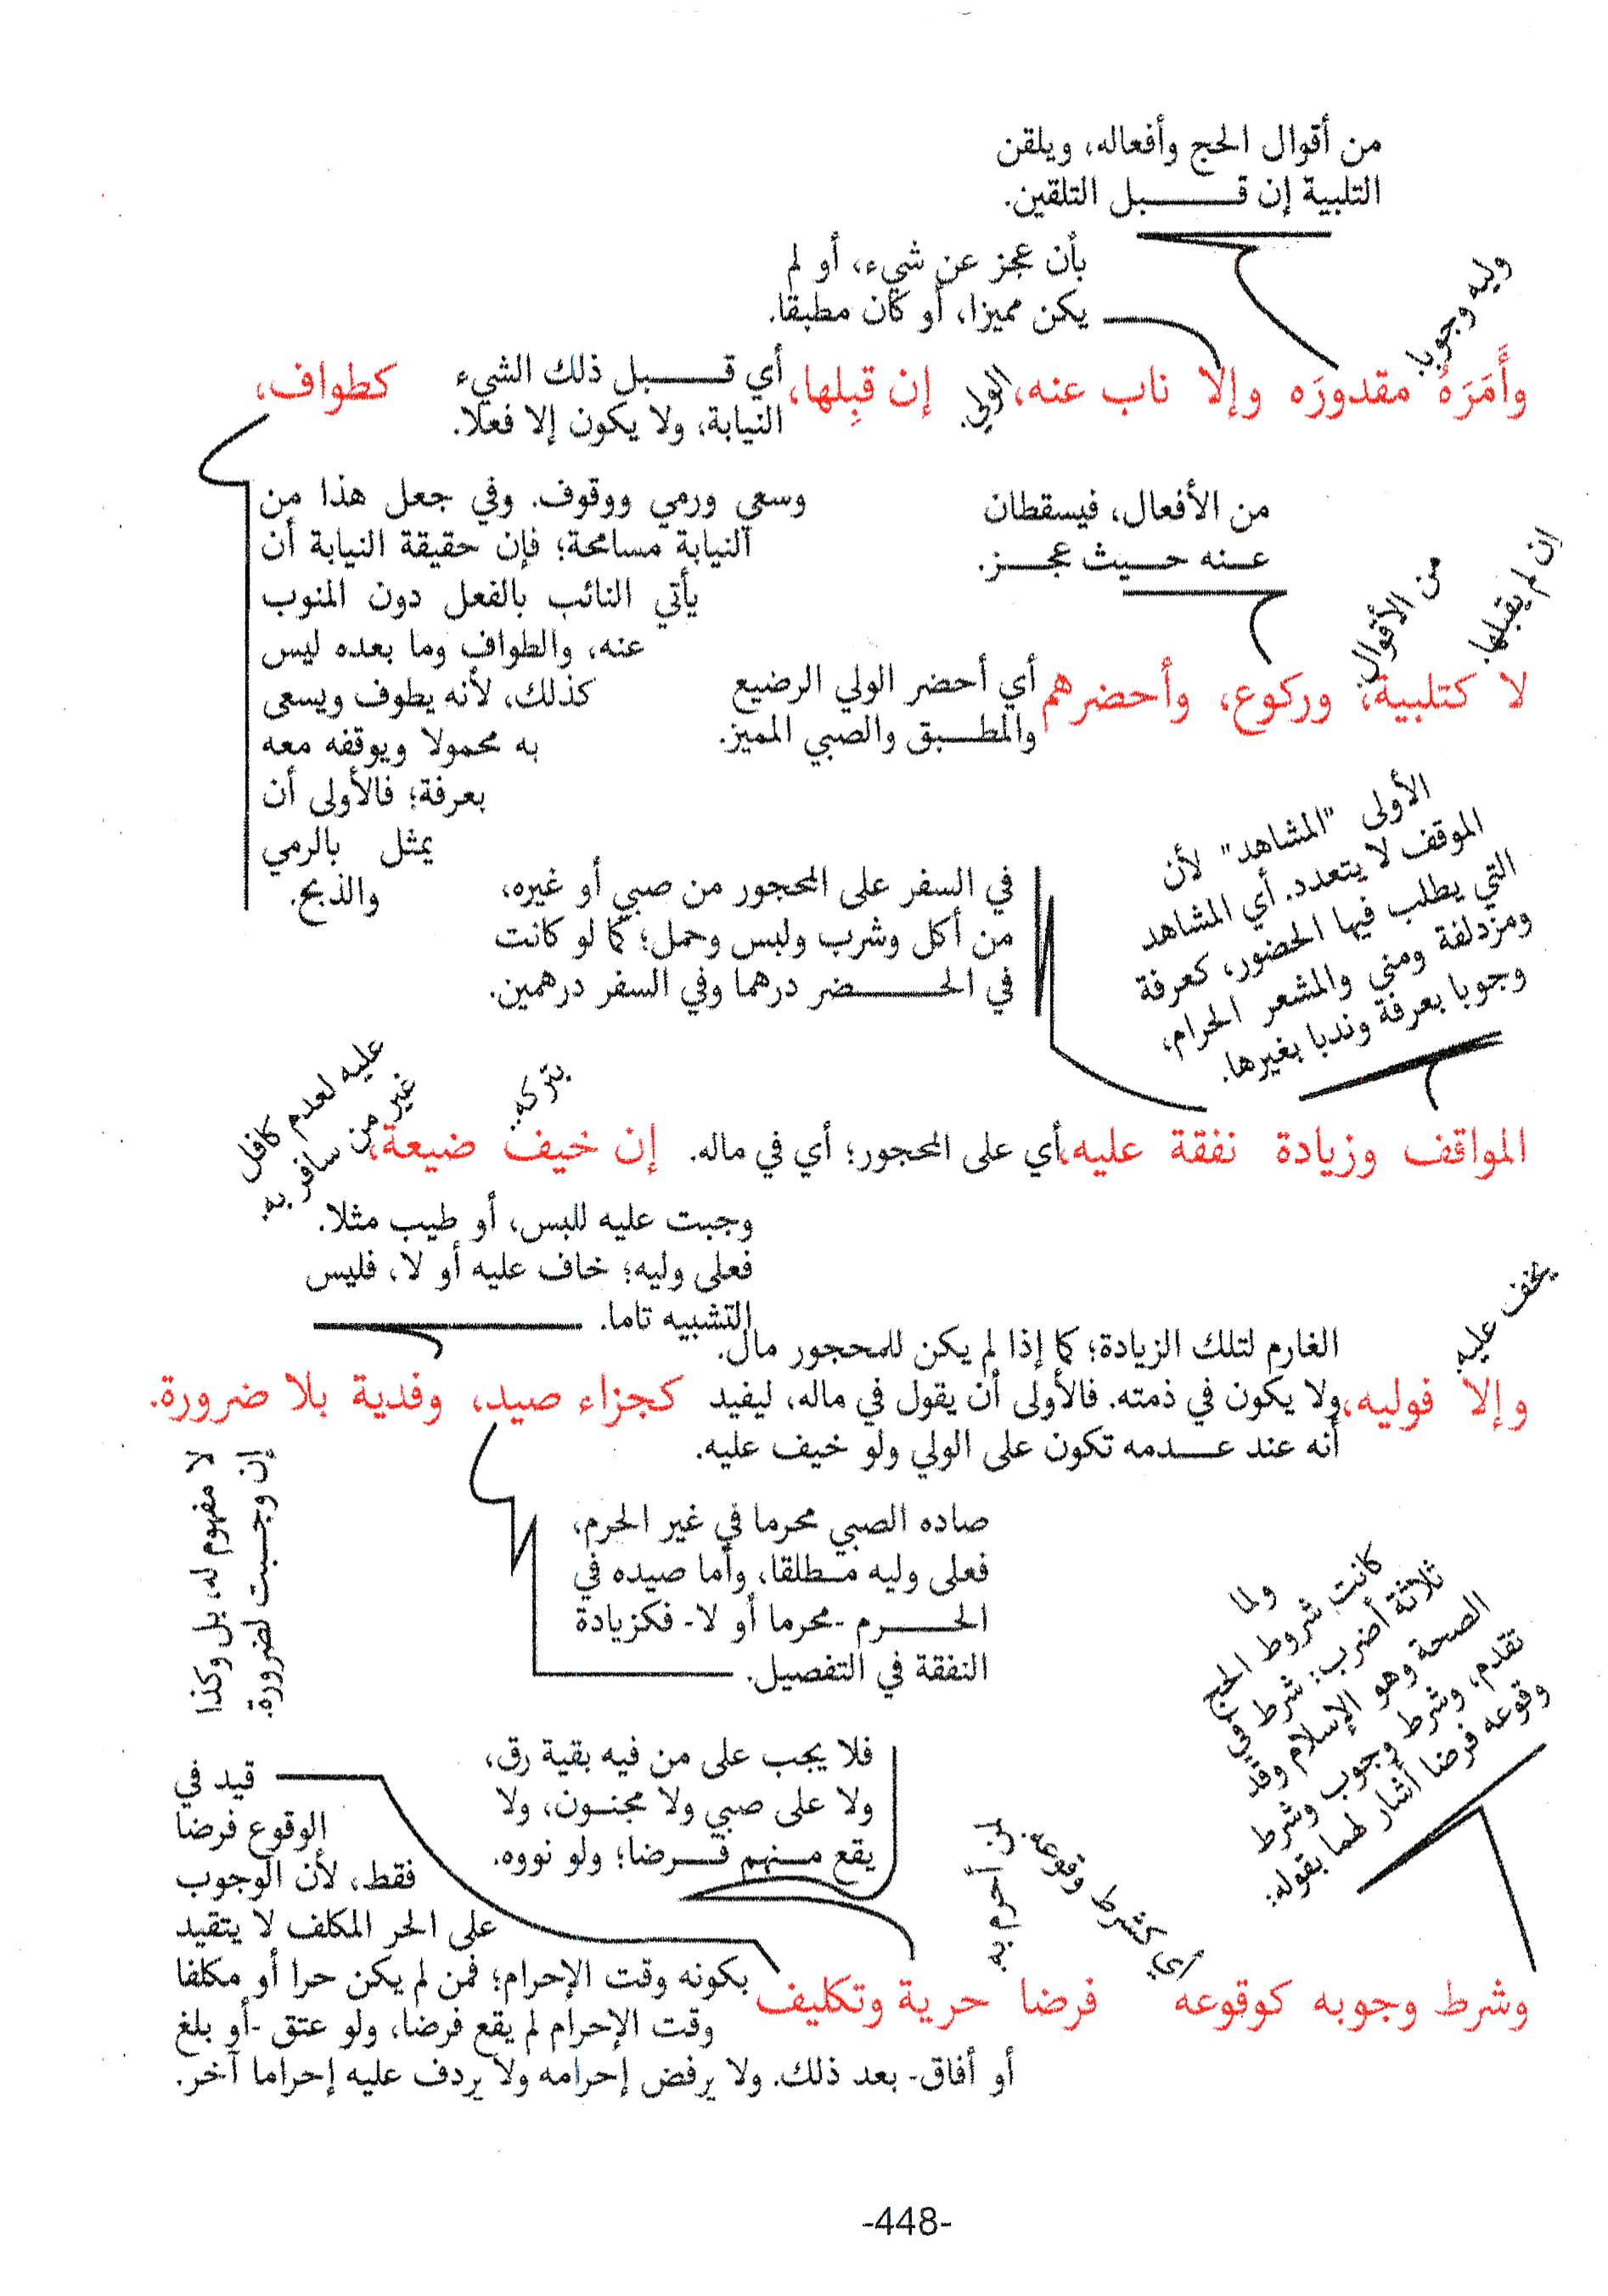 من أقوال الحج وأفعاله، ويلقن
التلبية إن قـبل التلقين.
بأن عجز عن شيء، أو لم
يكن مميزا، أو كان مطبقا.
وليه وجوبا.
وأَمَرَهُ مقدورَه وإلا ناب عنه، الولي. إن قبِلها، أي قـبل ذلك الشيء كطواف،
النيابة، ولا يكون إلا فعلا.
وسعي ورمي ووقوف. وفي جعل هذا من
النيابة مسامحة؛ فإن حقيقة النيابة أن
يأتي النائب بالفعل دون المنوب
عنه، والطواف وما بعده ليس
كذلك، لأنه يطوف ويسعى
به محمولا ويوقفه معه
بعرفة؛ فالأولى أن
يمثل بالرمي
والذبح.
من الأفعال، فيسقطان
عـنه حـيث عجـز.
من الأقوال.
إن لم يقبلها.
لا كتلبية، وركوع، وأحضرهم أي أحضر الولي الرضيع
والمطـبق والصبي المميز.
الأولى "المشاهد" لأن
الموقف لا يتعدد. أي المشاهد
التي يطلب فيها الحضور، كعرفة
ومزدلفة ومنى والمشعر الحرام،
وجوبا بعرفة وندبا بغيرها.
في السفر على المحجور من صبي أو غيره،
من أكل وشرب ولبس وحمل؛ كما لو كانت
في الحـضر درهما وفي السفر درهمين.
بتركه.
عليه لعدم كافل
غير من سافر به.
المواقف وزيادة نفقة عليه، أي على المحجور؛ أي في ماله. إن خيف ضيعة،
وجبت عليه للبس، أو طيب مثلا.
فعلى وليه؛ خاف عليه أو لا، فليس
التشبيه تاما.
يخف عليه.
الغارم لتلك الزيادة؛ كما إذا لم يكن للمحجور مال.
وإلا فوليه، ولا يكون في ذمته. فالأولى أن يقول في ماله، ليفيد كجزاء صيد، وفدية بلا ضرورة.
أنه عند عـدمه تكون على الولي ولو خيف عليه.
إن وجـبت لضرورة.
لا مفهوم له، بل وكذا
صاده الصبي محرما في غير الحرم،
فعلى وليه مـطلقا، وأما صيده في
الحـرم -محرما أو لا- فكزيادة
النفقة في التفصيل.
ولما
كانت شروط الحج
ثلاثة أضرب: شرط في
الصحة وهو الإسلام وقد
تقدم، وشرط وجوب وشرط
وقوعه فرضا أشار لهما بقوله:
فلا يجب على من فيه بقية رق،
ولا على صبي ولا مجنـون، ولا
يقع مـنهم فـرضا؛ ولو نووه.
أي كشرط وقوعه.
لمن أحرم به
وشرط وجوبه كوقوعه فرضا حرية وتكليف
قيد في
الوقوع فرضا
فقط، لأن الوجوب
على الحر المكلف لا يتقيد
بكونه وقت الإحرام؛ فمن لم يكن حرا أو مكلفا
وقت الإحرام لم يقع فرضا، ولو عتق -أو بلغ
أو أفاق- بعد ذلك. ولا يرفض إحرامه ولا يردف عليه إحراما آخر.
-448-